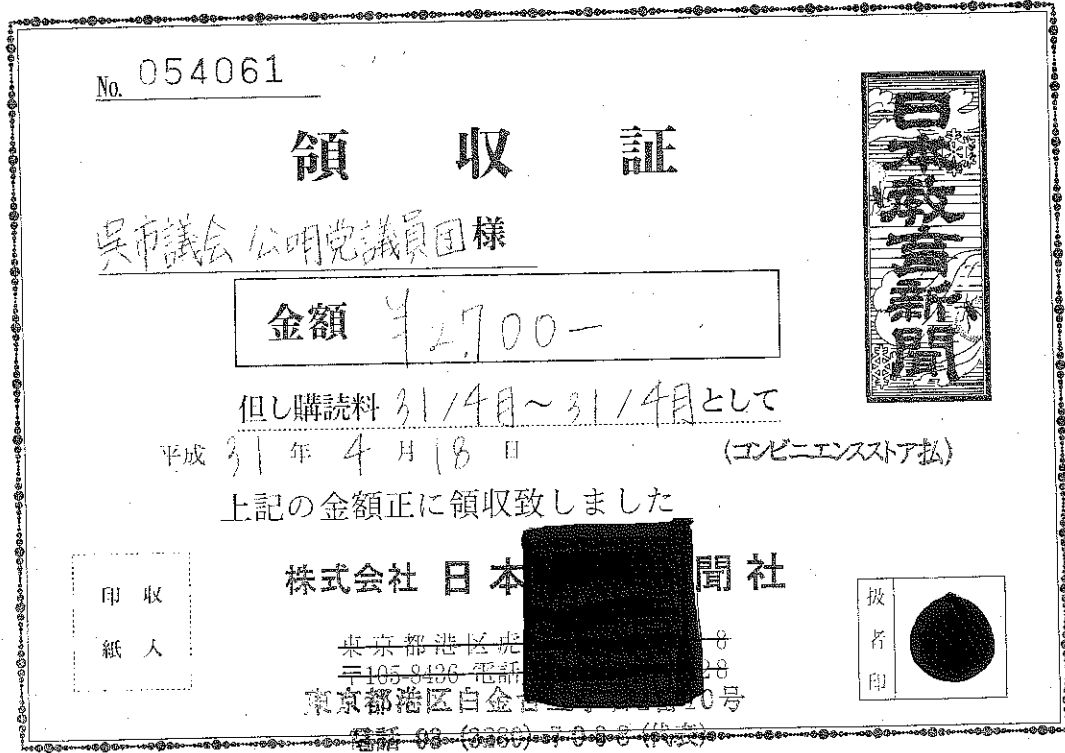 No. 054061
領収証
日本教育新聞
呉市議会 公明党議員団 様
金額 ¥2,700-
但し購読料 31/4月~31/4月として
平成 31 年 4 月 18 日
(コンビニエンスストア払)
上記の金額正に領収致しました
株式会社 日本 聞社
東京都港区虎 8
〒105-8436 電話 28
東京都港区白金台 10号
電話 03-
(代表)
収入
印紙
扱者印